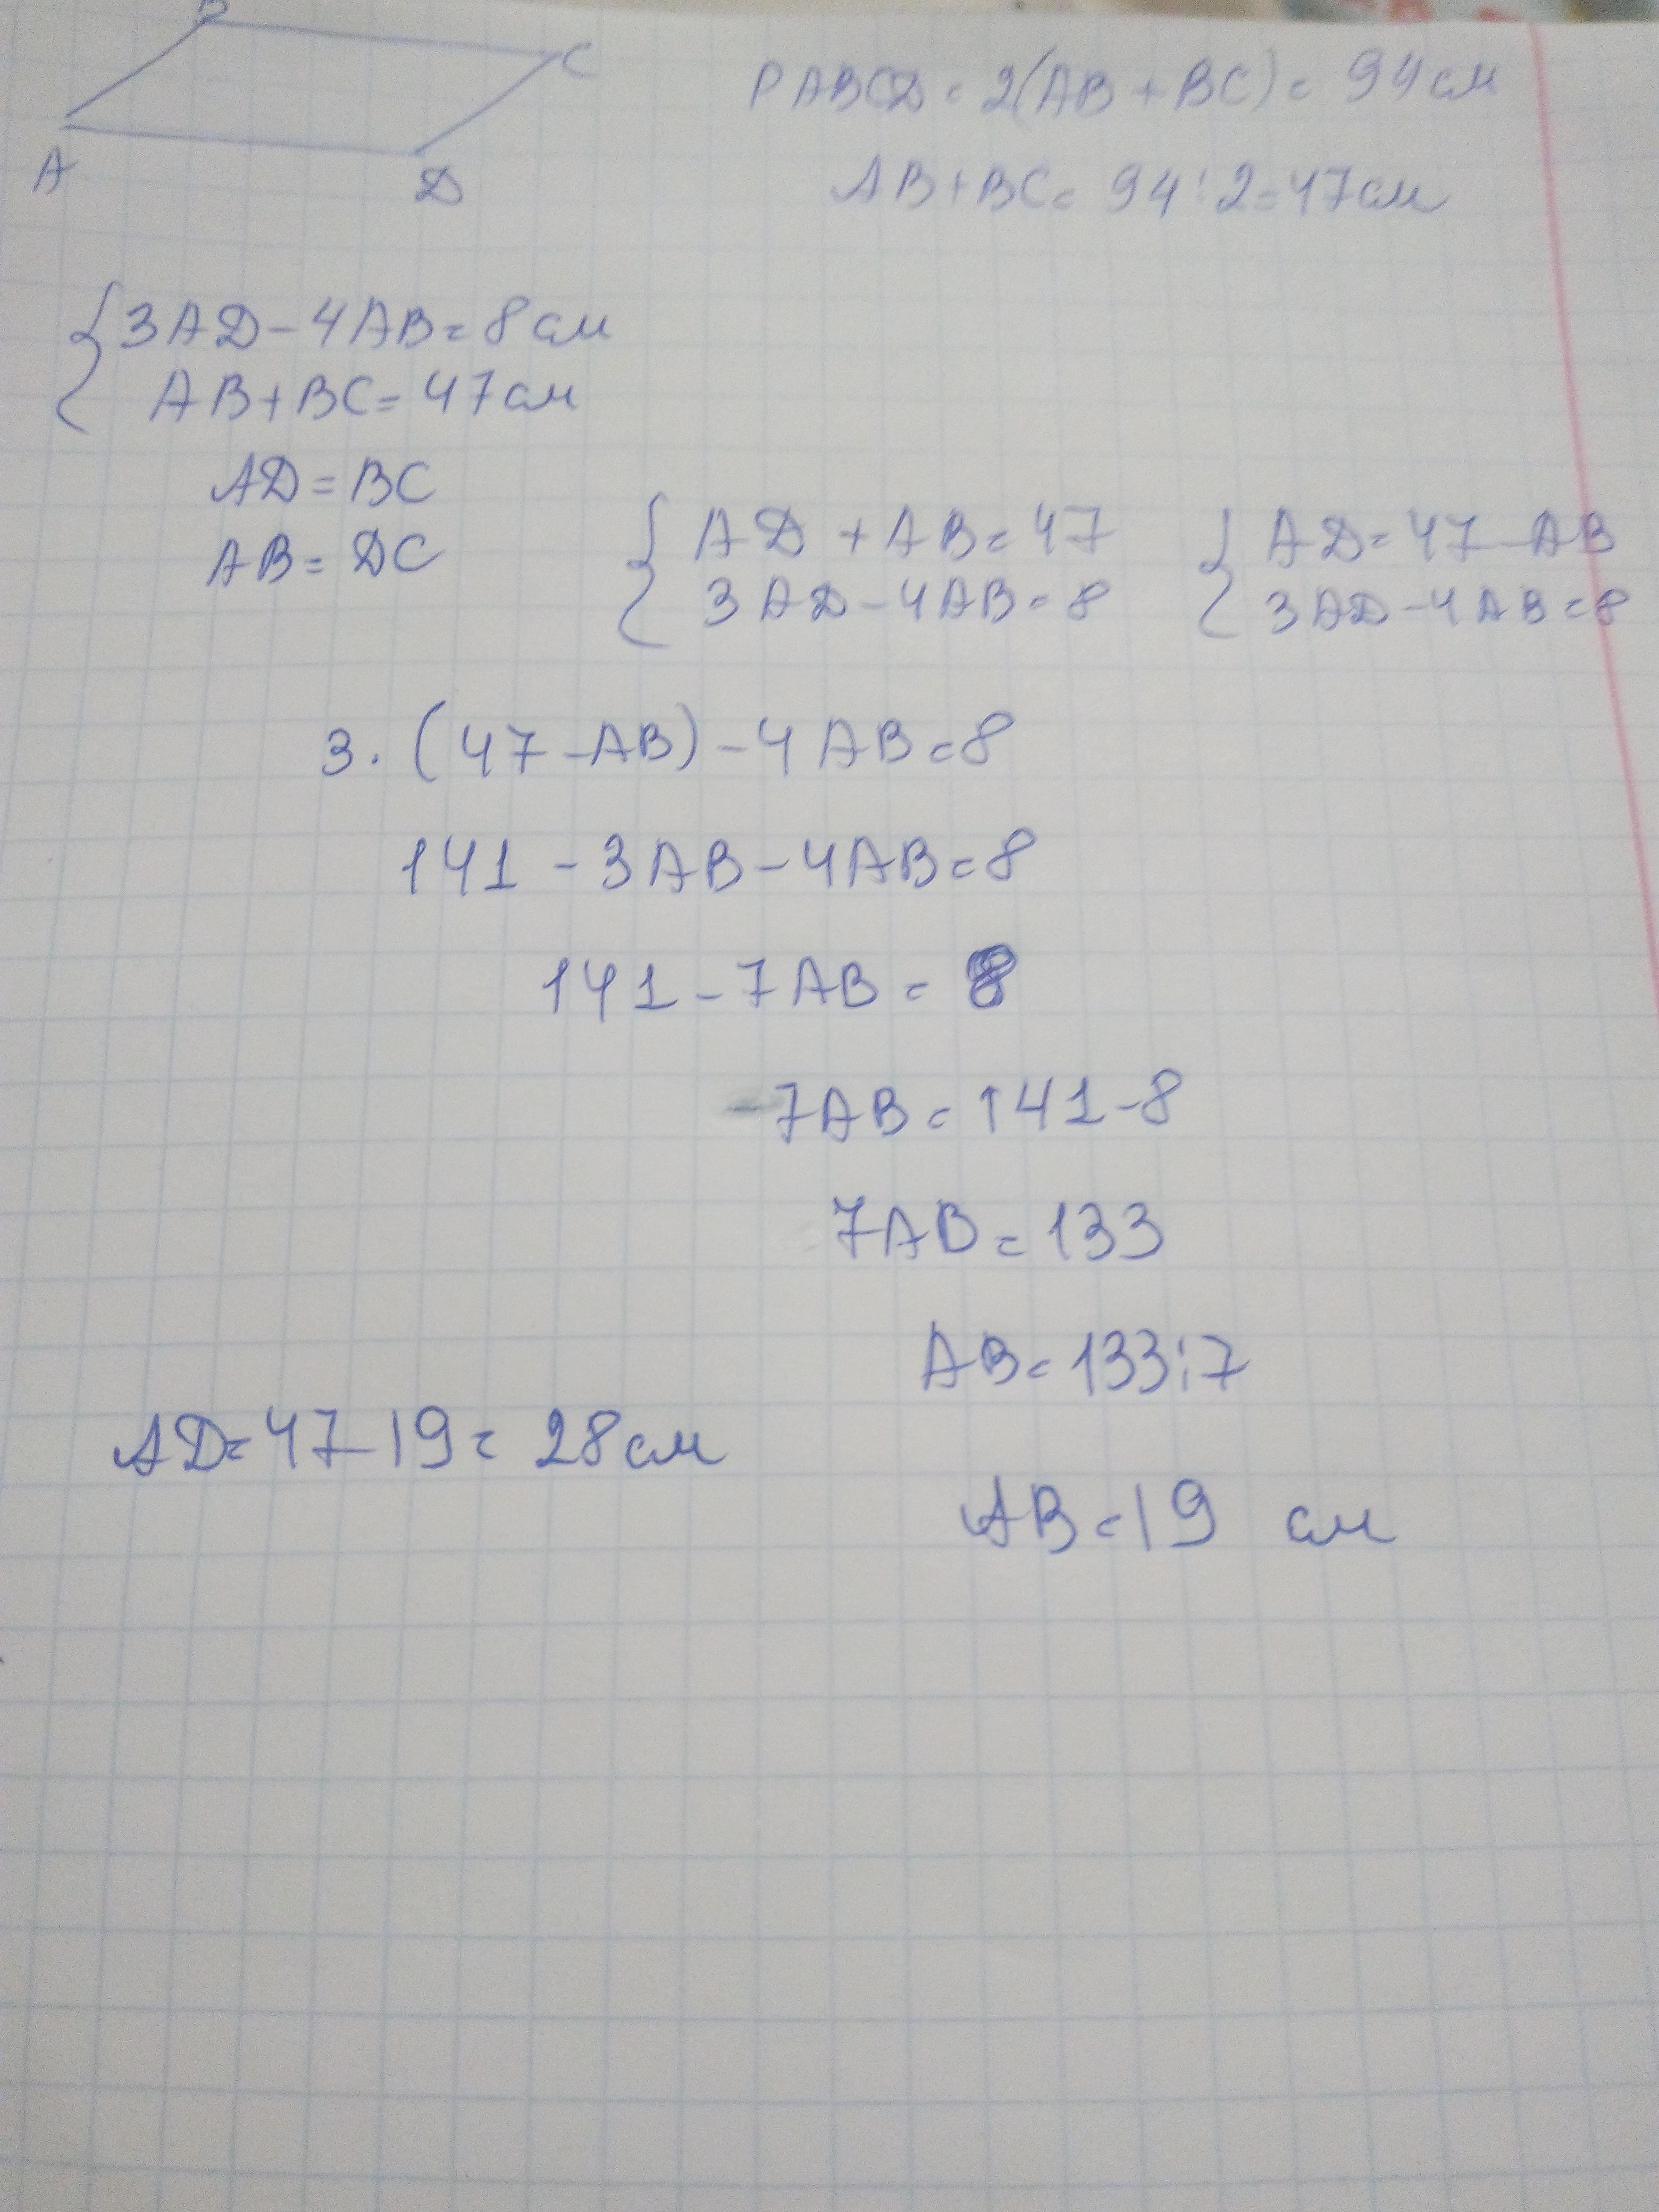 B
C
A
D
P ABCD = 2(AB + BC) = 94 см
AB + BC = 94 : 2 = 47 см
3AD - 4AB = 8 см
AB + BC = 47 см
AD = BC
AB = DC
AD + AB = 47
3AD - 4AB = 8
AD = 47 - AB
3AD - 4AB = 8
3 · (47 - AB) - 4AB = 8
141 - 3AB - 4AB = 8
141 - 7AB = 8
-7AB = 141 - 8
7AB = 133
AB = 133 : 7
AD = 47 - 19 = 28 см
AB = 19 см